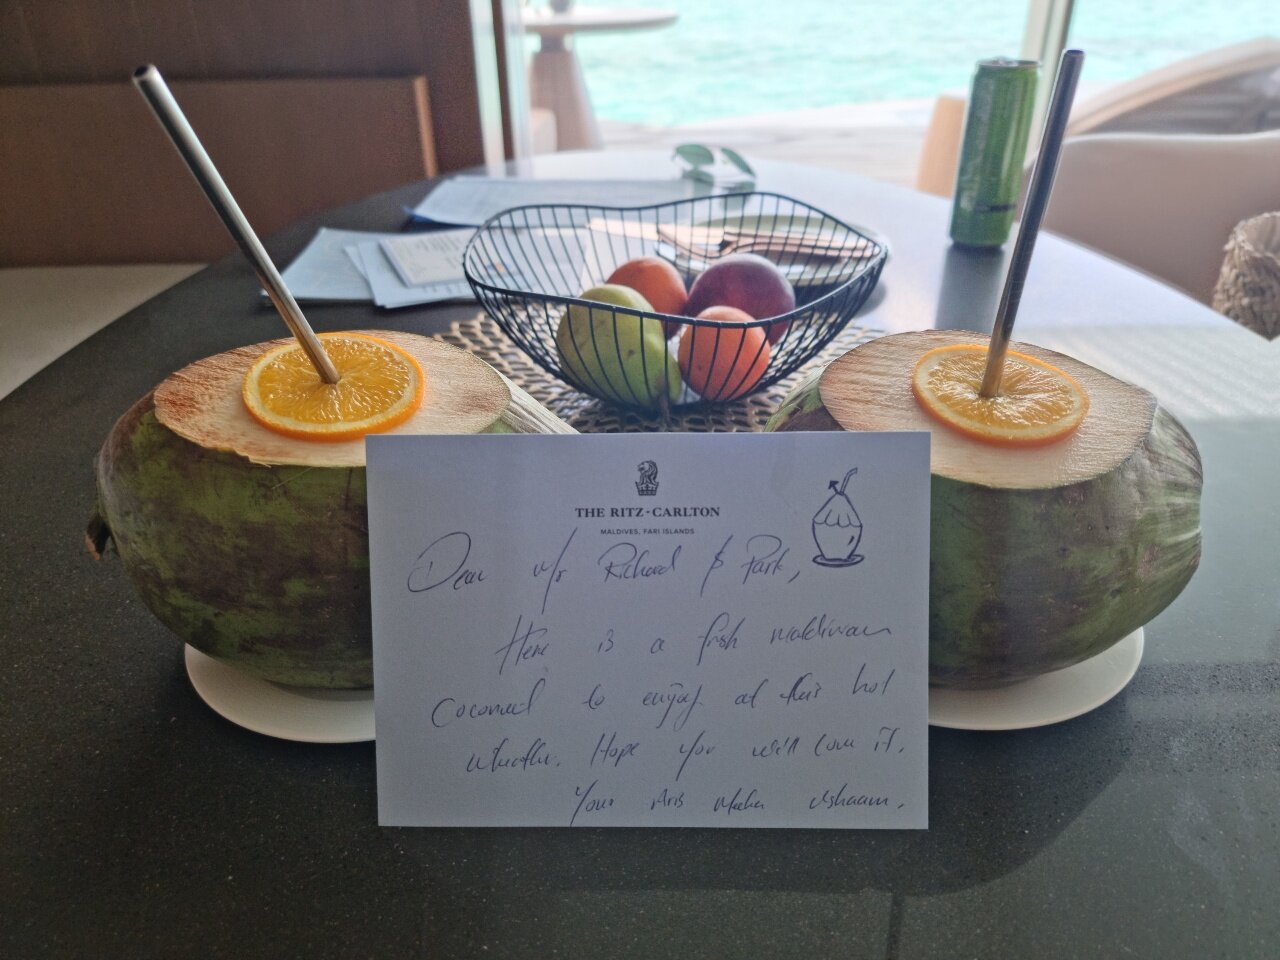 THE RITZ-CARLTON
MALDIVES, FARI ISLANDS
Dear Mr Richard & Park,
Here is a fresh maldivian
Coconut to enjoy at this hot
wheather. Hope you will love it.
Your Aris Meeha Ishaam.